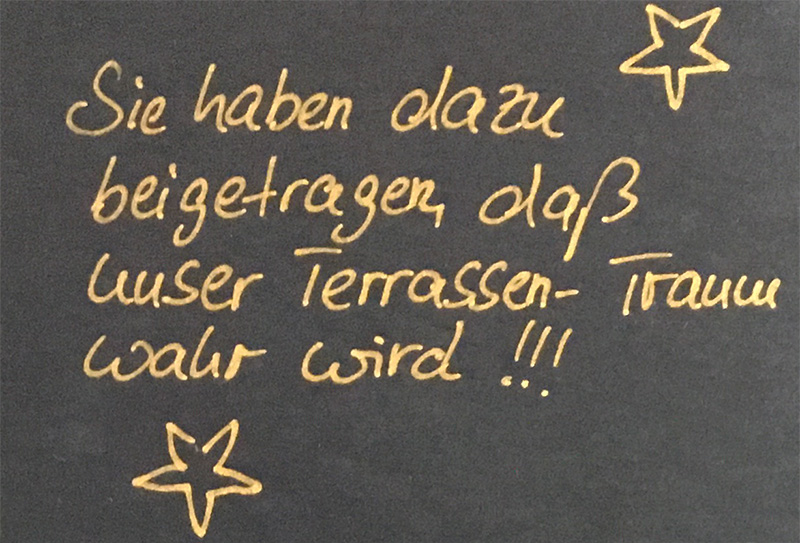 Sie haben dazu
beigetragen, daß
unser Terrassen-Traum
wahr wird !!!